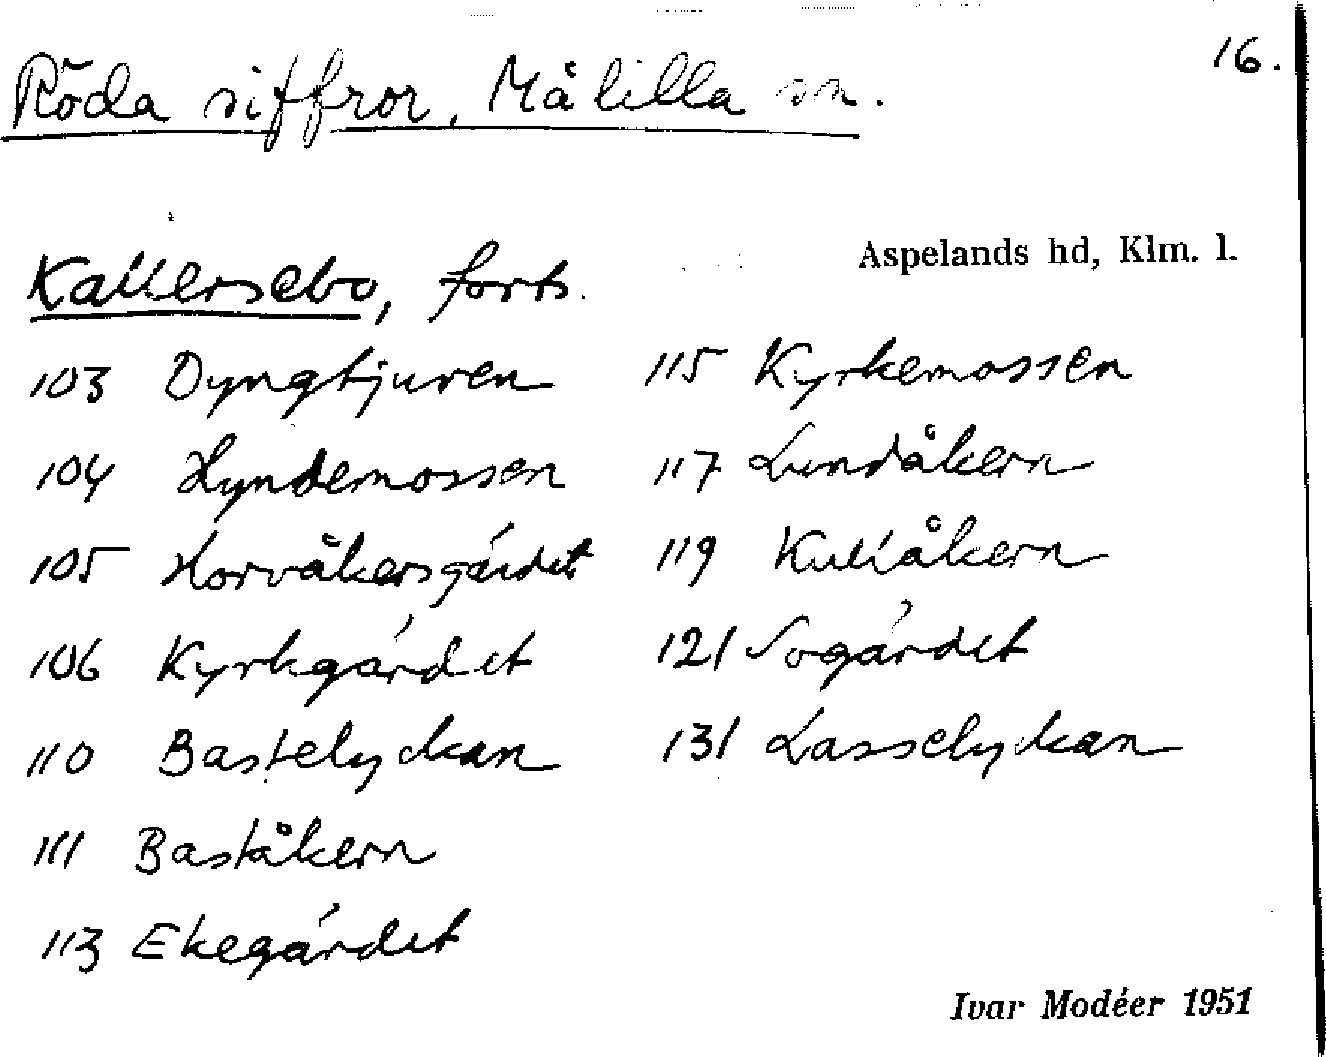 16.
Röda siffror, Målilla sn.
Aspelands hd, Klm. l.
Kallersebo, forts.
103 Dyngtjuren
104 Lyndemossen
105 Horvåkersgärdet
106 Kyrkgärdet
110 Bastelyckan
111 Baståkern
113 Ekegärdet
115 Kyrkemossen
117 Lundåkern
119 Kullåkern
121 Sogärdet
131 Lasselyckan
Ivar Modéer 1951